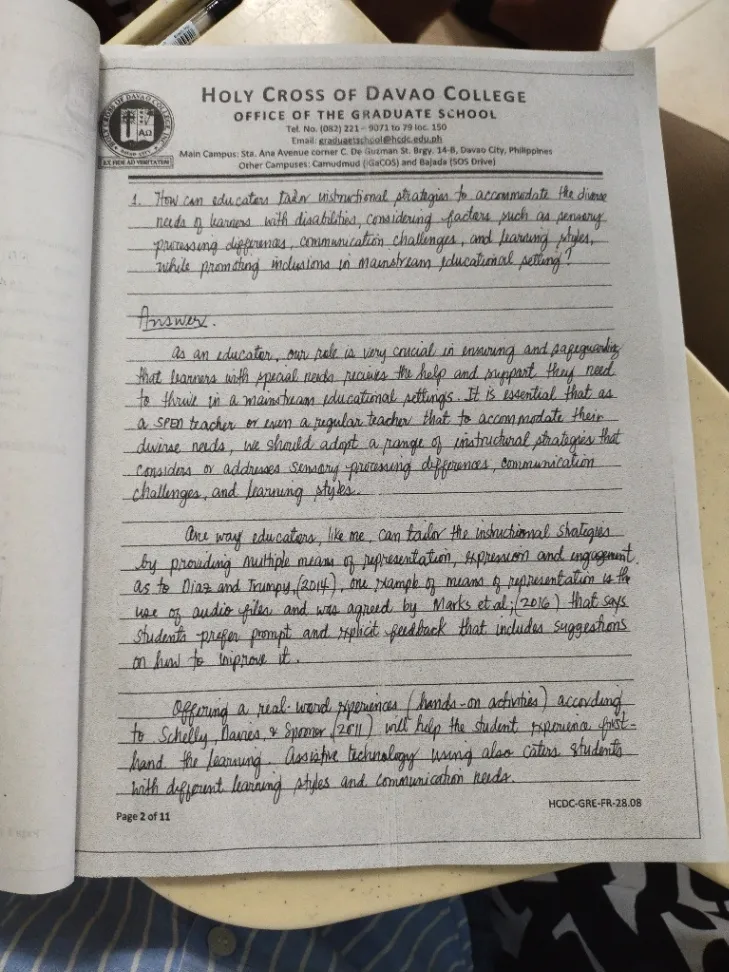 HOLY CROSS OF DAVAO COLLEGE
OFFICE OF THE GRADUATE SCHOOL
Tel. No. (082) 221 - 9071 to 79 loc. 150
Email: graduatetschool@hcdc.edu.ph
Main Campus: Sta. Ana Avenue corner C. De Guzman St. Brgy. 14-B, Davao City, Philippines
Other Campuses: Camudmud (IGaCOS) and Bajada (SOS Drive)
1. How can educators tailor instructional strategies to accommodate the diverse
needs of learners with disabilities, considering factors such as sensory
processing differences, communication challenges, and learning styles,
while promoting inclusions in mainstream educational setting?
Answer.
As an educator, our role is very crucial in ensuring and safeguarding
that learners with special needs receives the help and support they need
to thrive in a mainstream educational settings. It is essential that as
a SPED teacher or even a regular teacher that to accommodate their
diverse needs, we should adopt a range of instructural strategies that
considers or addresses sensory processing differences, communication
challenges, and learning styles.
One way educators, like me, can tailor the instructional strategies
by providing multiple means of representation, expression and engagement.
as to Diaz and Trumpy, (2014), one example of means of representation is the
use of audio files and was agreed by Marks et al; (2016) that says
students prefer prompt and explicit feedback that includes suggestions
on how to improve it.
Offering a real-word experiences (hands-on activities) according
to Schelly, Davies, & Spooner (2011) will help the student experience first-
hand the learning. Assistive technology using also caters students
with different learning styles and communication needs.
Page 2 of 11
HCDC-GRE-FR-28.08